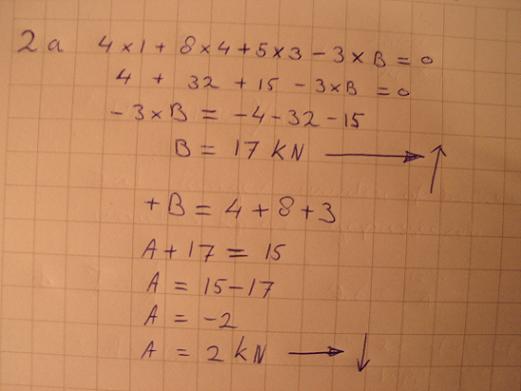 2a 4×1 + 8×4 + 5×3 - 3×B = 0
4 + 32 + 15 - 3×B = 0
-3×B = -4-32-15
B = 17 KN → ↑
+B = 4+8+3
A+17 = 15
A = 15-17
A = -2
A = 2 kN → ↓